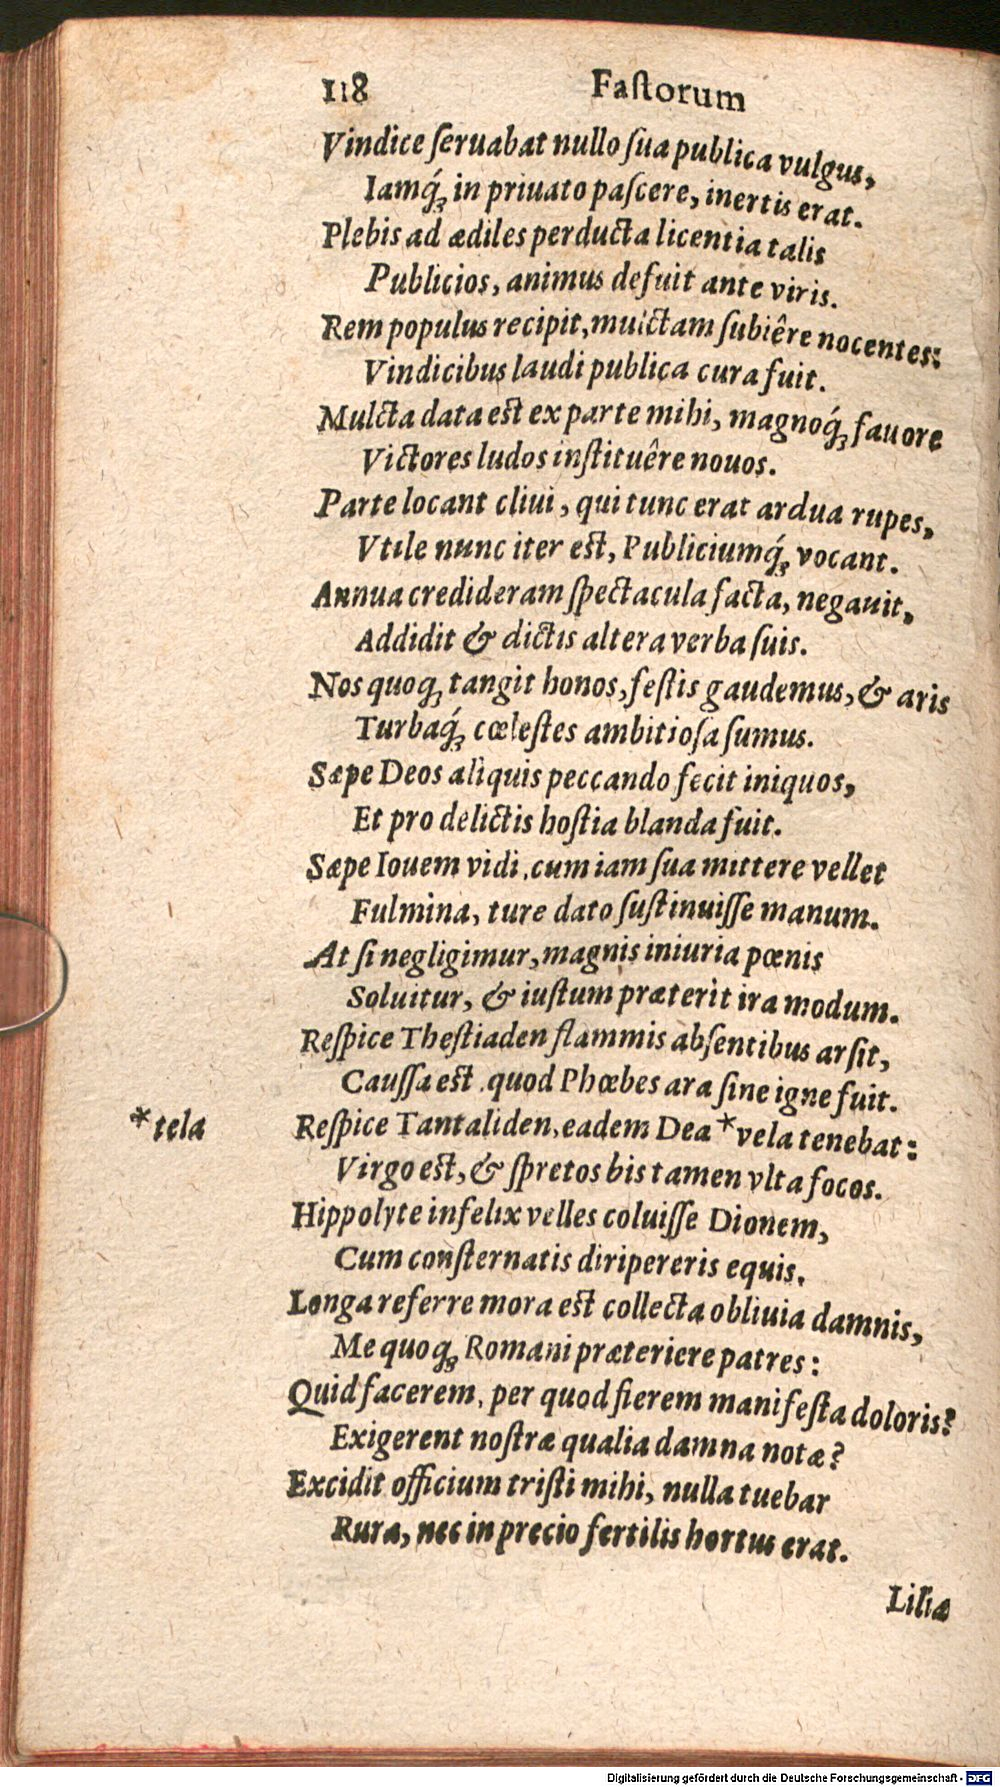 118 Faſtorum
Vindice ſeruabat nullo ſua publica vulgus,
Iamq́; in priuato paſcere, inertis erat.
Plebis ad ædiles perducta licentia talis
Publicios, animus defuit ante viris.
Rem populus recipit, mulctam ſubiêre nocentes:
Vindicibus laudi publica cura fuit.
Mulcta data est ex parte mihi, magnoq́; fauore
Victores ludos inſtituêre nouos.
Parte locant cliui, qui tunc erat ardua rupes,
Vtile nunc iter est, Publiciumq́; vocant.
Annua credideram ſpectacula facta, negauit,
Addidit & dictis altera verba ſuis.
Nos quoq; tangit honos, feſtis gaudemus, & aris
Turbaq́; cœleſtes ambitioſa ſumus.
Sæpe Deos aliquis peccando fecit iniquos,
Et pro delictis hoſtia blanda fuit.
Sæpe Iouem vidi, cum iam ſua mittere vellet
Fulmina, ture dato ſuſtinuiſſe manum.
At ſi negligimur, magnis iniuria pœnis
Soluitur, & iuſtum præterit ira modum.
Reſpice Theſtiaden flammis abſentibus arſit,
Cauſſa est, quod Phœbes ara ſine igne fuit.
*tela
Reſpice Tantaliden, eadem Dea *vela tenebat:
Virgo est, & ſpretos bis tamen vlta focos.
Hippolyte infelix velles coluiſſe Dionem,
Cum conſternatis diripereris equis.
Longa referre mora est collecta obliuia damnis,
Me quoq; Romani præteriere patres:
Quid facerem, per quod fierem manifeſta doloris?
Exigerent noſtræ qualia damna notæ?
Excidit officium triſti mihi, nulla tuebar
Rura, nec in precio fertilis hortus erat.
Lilia
Digitalisierung gefördert durch die Deutsche Forschungsgemeinschaft - DFG